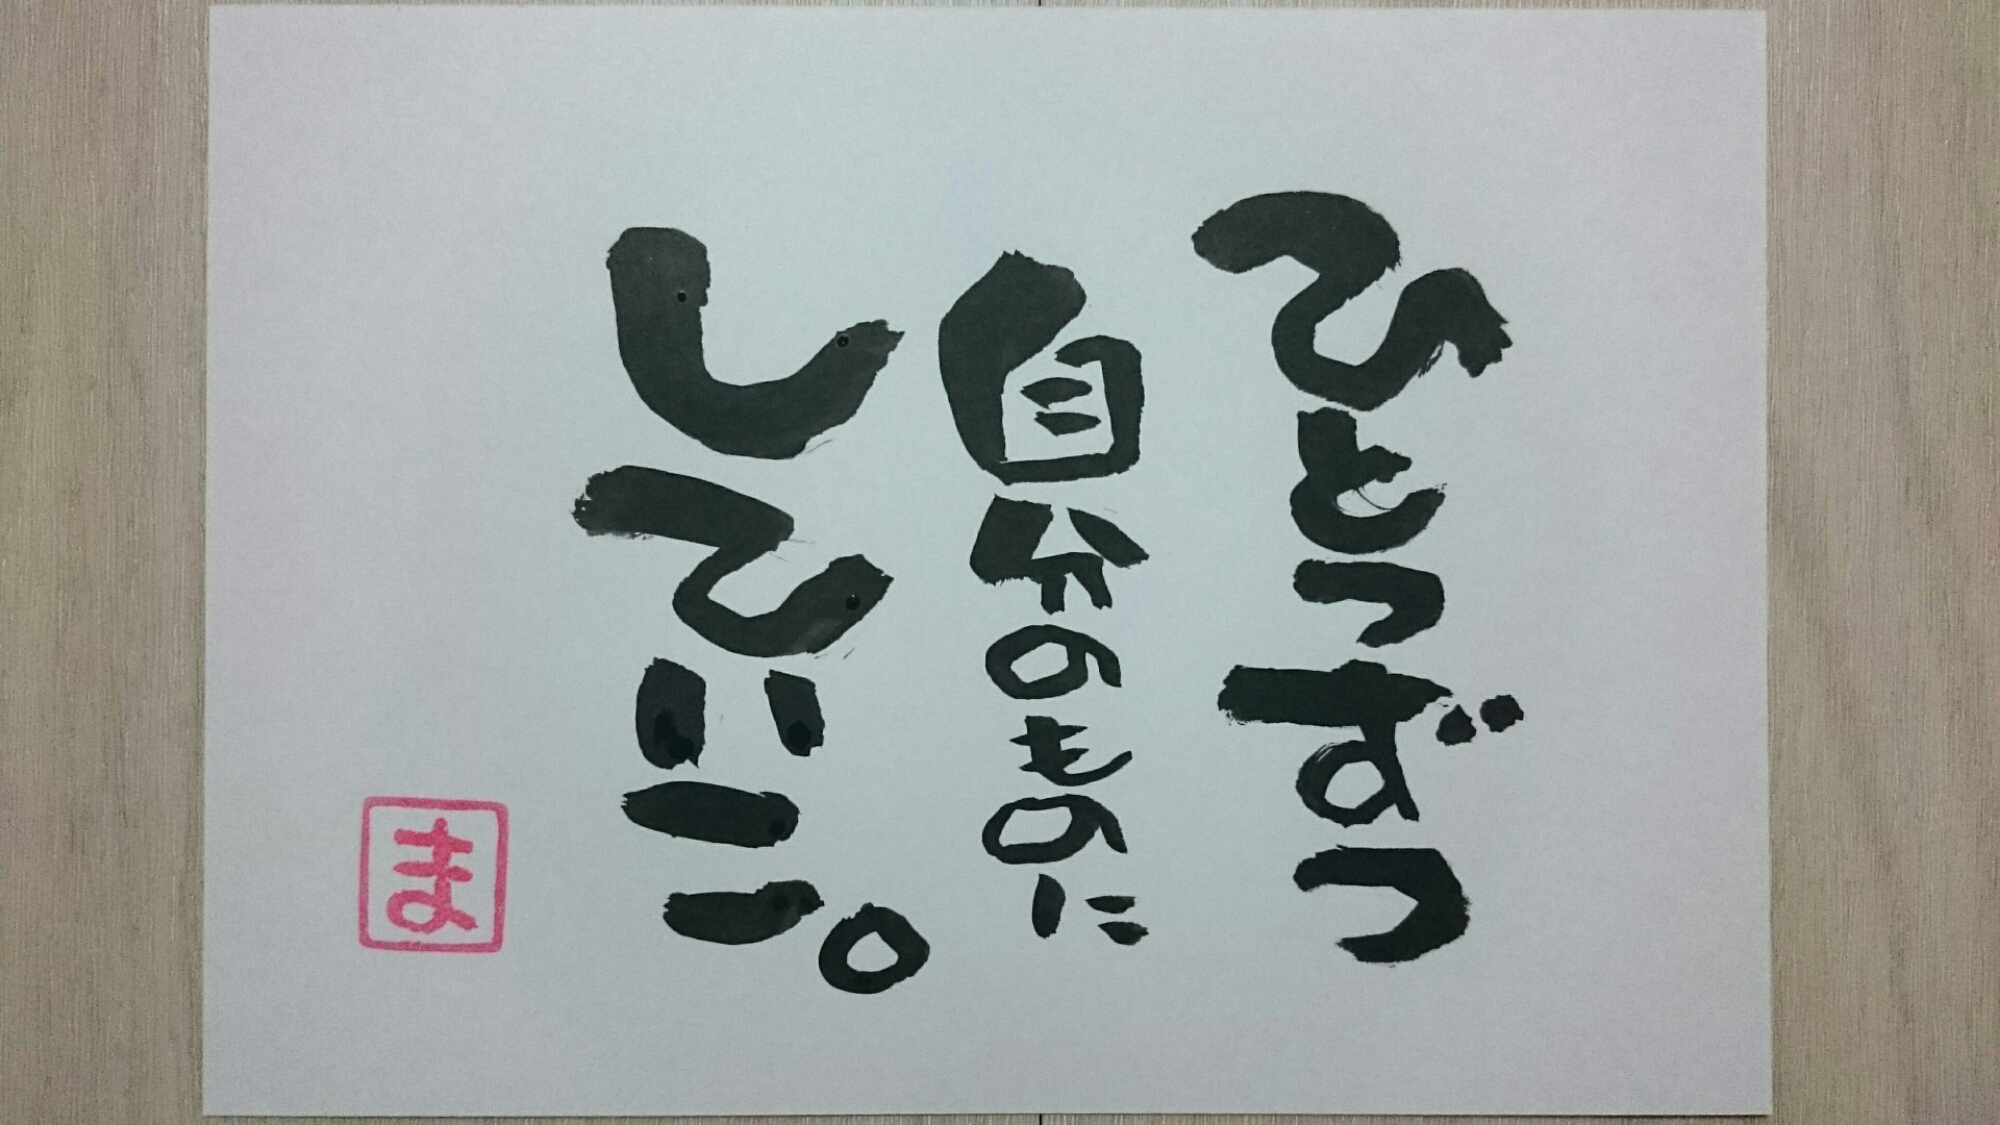 ひとつずつ
自分のものに
していこ。
ま